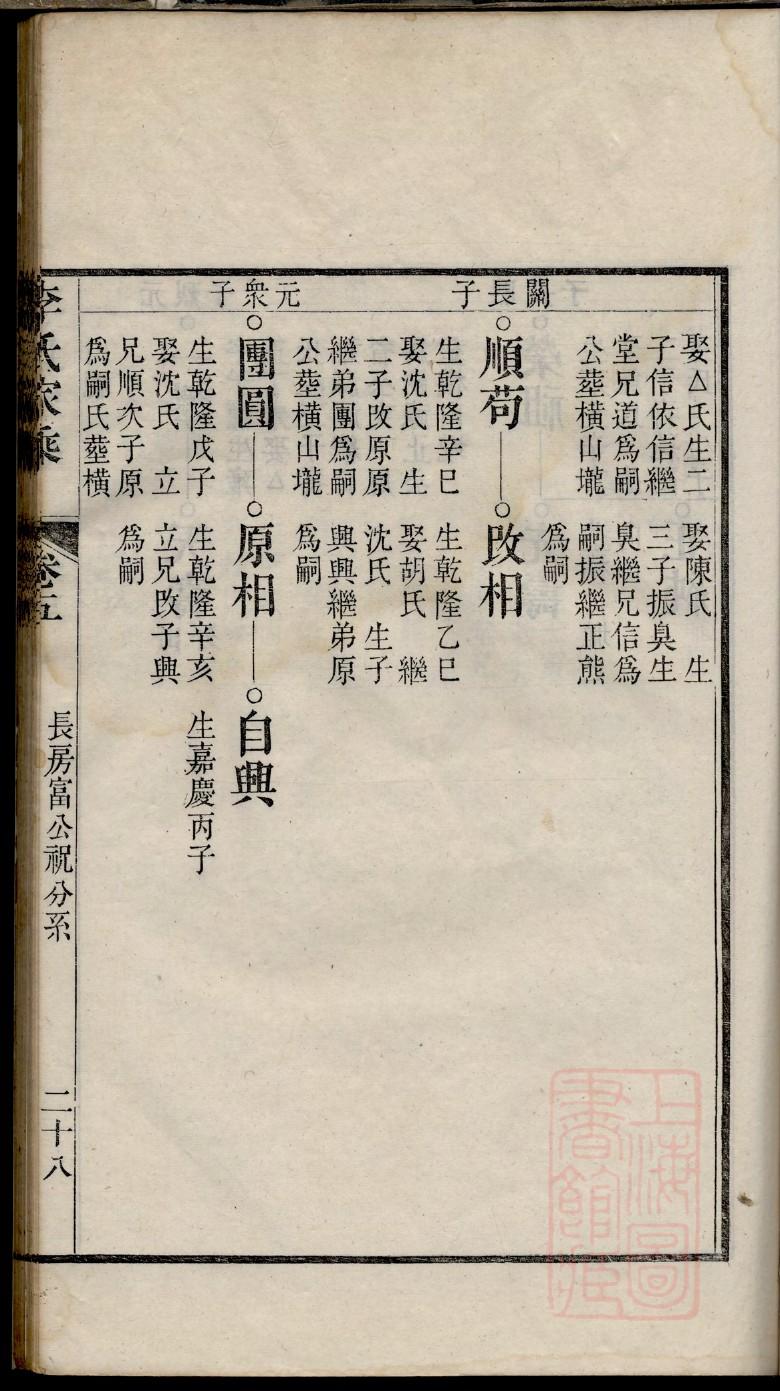 娶△氏生二
子信依信繼
堂兄道爲嗣
公塟橫山壠
娶陳氏　生
三子振臭生
臭繼兄信爲
嗣振繼正熊
爲嗣
關長子
順苟
生乾隆辛巳
娶沈氏　生
二子攺原原
繼弟團爲嗣
公塟橫山壠
攺相
生乾隆乙巳
娶胡氏　繼
沈氏　生子
興興繼弟原
爲嗣
元衆子
團圓
生乾隆戊子
娶沈氏　立
兄順次子原
爲嗣氏塟橫
原相
生乾隆辛亥
立兄攺子興
爲嗣
自興
生嘉慶丙子
李氏家乘
卷五
長房富公祝分系
二十八
上海圖
書館藏